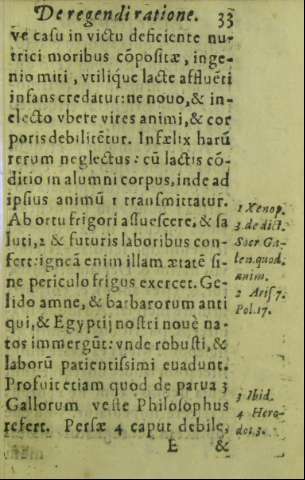 De regendi ratione. 33
ve casu in victu deficiente nu-
trici moribus cōpositæ, inge-
nio miti, vtilique lacte affluēti
infans credatur: ne nouo, & in-
electo vbere vires animi, & cor
poris debilitētur. Infælix harū
rerum neglectus: cū lactis cō-
ditio in alumni corpus, inde ad
ipsius animū 1 transmittatur.
Ab ortu frigori assuescere, & sa
luti, 2 & futuris laboribus con-
fert: igneā enim illam ætatē si-
ne periculo frigus exercet. Ge-
lido amne, & barbarorum anti
qui, & Egyptij nostri nouè na-
tos immergūt: vnde robusti, &
laborū patientissimi euadunt.
Profuit etiam quod de parua 3
Gallorum veste Philosophus
refert. Persæ 4 caput debile,
E &
1 Xenop.
3 de dict.
Socr Ga-
len. quod.
anim.
2 Aris 7.
Pol. 17.
3 Ibid.
4 Hero-
dot 3.